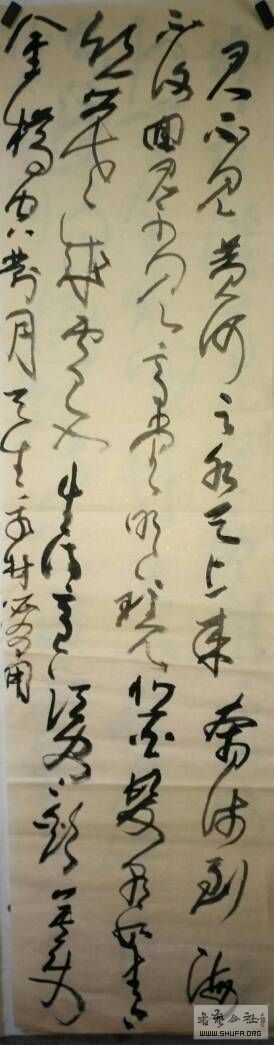 君不见黄河之水天上来奔流到海
不复回君不见高堂明镜悲白发朝如青
丝暮成雪人生得意须尽欢莫使
金樽空对月天生我材必有用
书艺公社
WWW.SHUFA.ORG